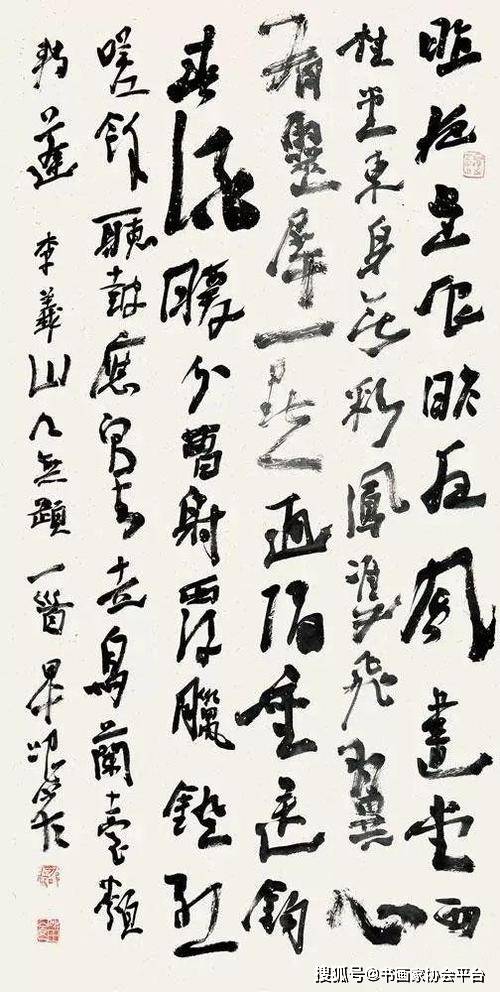 昨夜星辰昨夜風畫堂西
桂堂東身無彩鳳雙飛翼心
有靈犀一點通隔座送鉤
春酒暖分曹射覆臘燈紅
嗟餘聽鼓應官去走馬蘭臺類
轉蓬 李義山無題一首
搜狐号@书画家协会平台